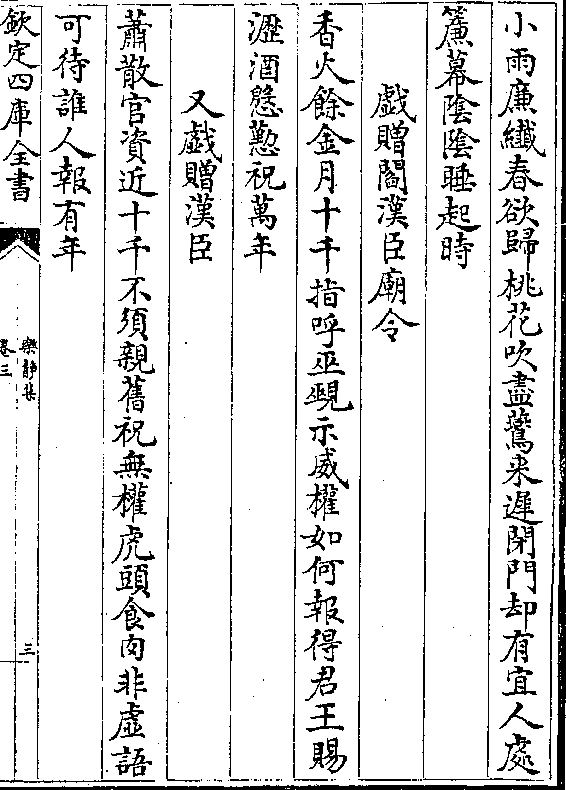 小雨廉纖春欲歸桃花吹盡鶯來遲閑門却有宜人處
簾幕陰陰睡起時
戯贈閻漢臣廟令
香火餘金月十千指呼巫覡示威權如何報得君王賜
瀝酒慇懃祝萬年
又戯贈漢臣
蕭散官資近十千不須親舊祝無權虎頭食肉非虛語
可待誰人報有年
欽定四庫全書
樂静集
卷三
三